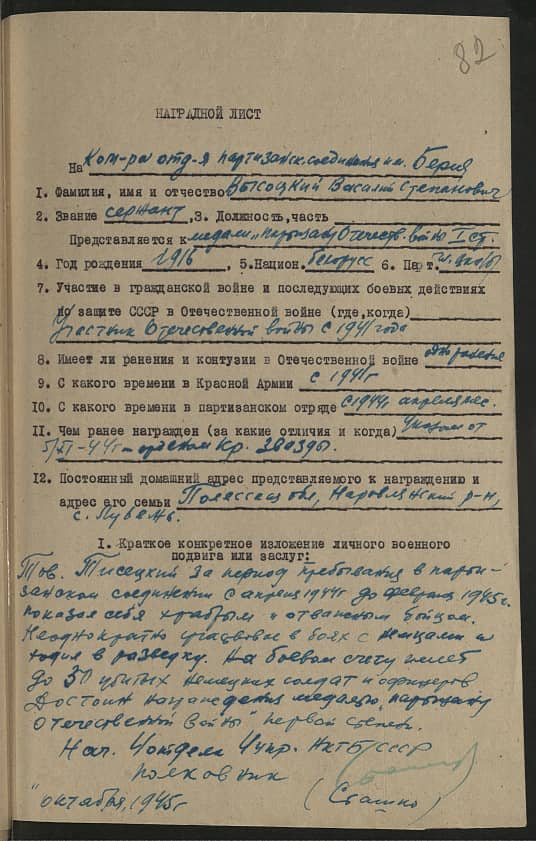 82
НАГРАДНОЙ ЛИСТ
На Ком-ра отд-я партизанск. соединения им. Берия
1. Фамилия, имя и отчество Высоцкий Василий Степанович
2. Звание сержант, 3. Должность, часть
Представляется к медали "партизану Отечеств. войны I ст.
4. Год рождения 1916, 5. Национ. белорусс 6. Парт.
7. Участие в гражданской войне и последующих боевых действиях
по защите СССР в Отечественной войне (где, когда)
Участник Отечественной войны с 1941 года
8. Имеет ли ранения и контузии в Отечественной войне одно ранение
9. С какого времени в Красной Армии с 1941 г
10. С какого времени в партизанском отряде с 1944 г апреля мес.
11. Чем ранее награжден (за какие отличия и когда) Указом от
5/XI-44 г орденом Кр. Звезды.
12. Постоянный домашний адрес представляемого к награждению и
адрес его семьи Полесская обл, Наровлянский р-н,
с.
I. Краткое конкретное изложение личного военного
подвига или заслуг:
Тов. за период пребывания в парти-
занском соединении с апреля 1944 г до февраля 1945 г.
показал себя храбрым и отважным бойцом.
Неоднократно участвовал в боях с немцами и
ходил в разведку. На боевом счету имеет
до 30 убитых немецких солдат и офицеров
Достоин награждения медалью "партизану
Отечественной войны" первой степени.
Нач. 4 отдела 4 упр. НКГБ СССР
полковник
(Сташко)
" октября, 1945 г